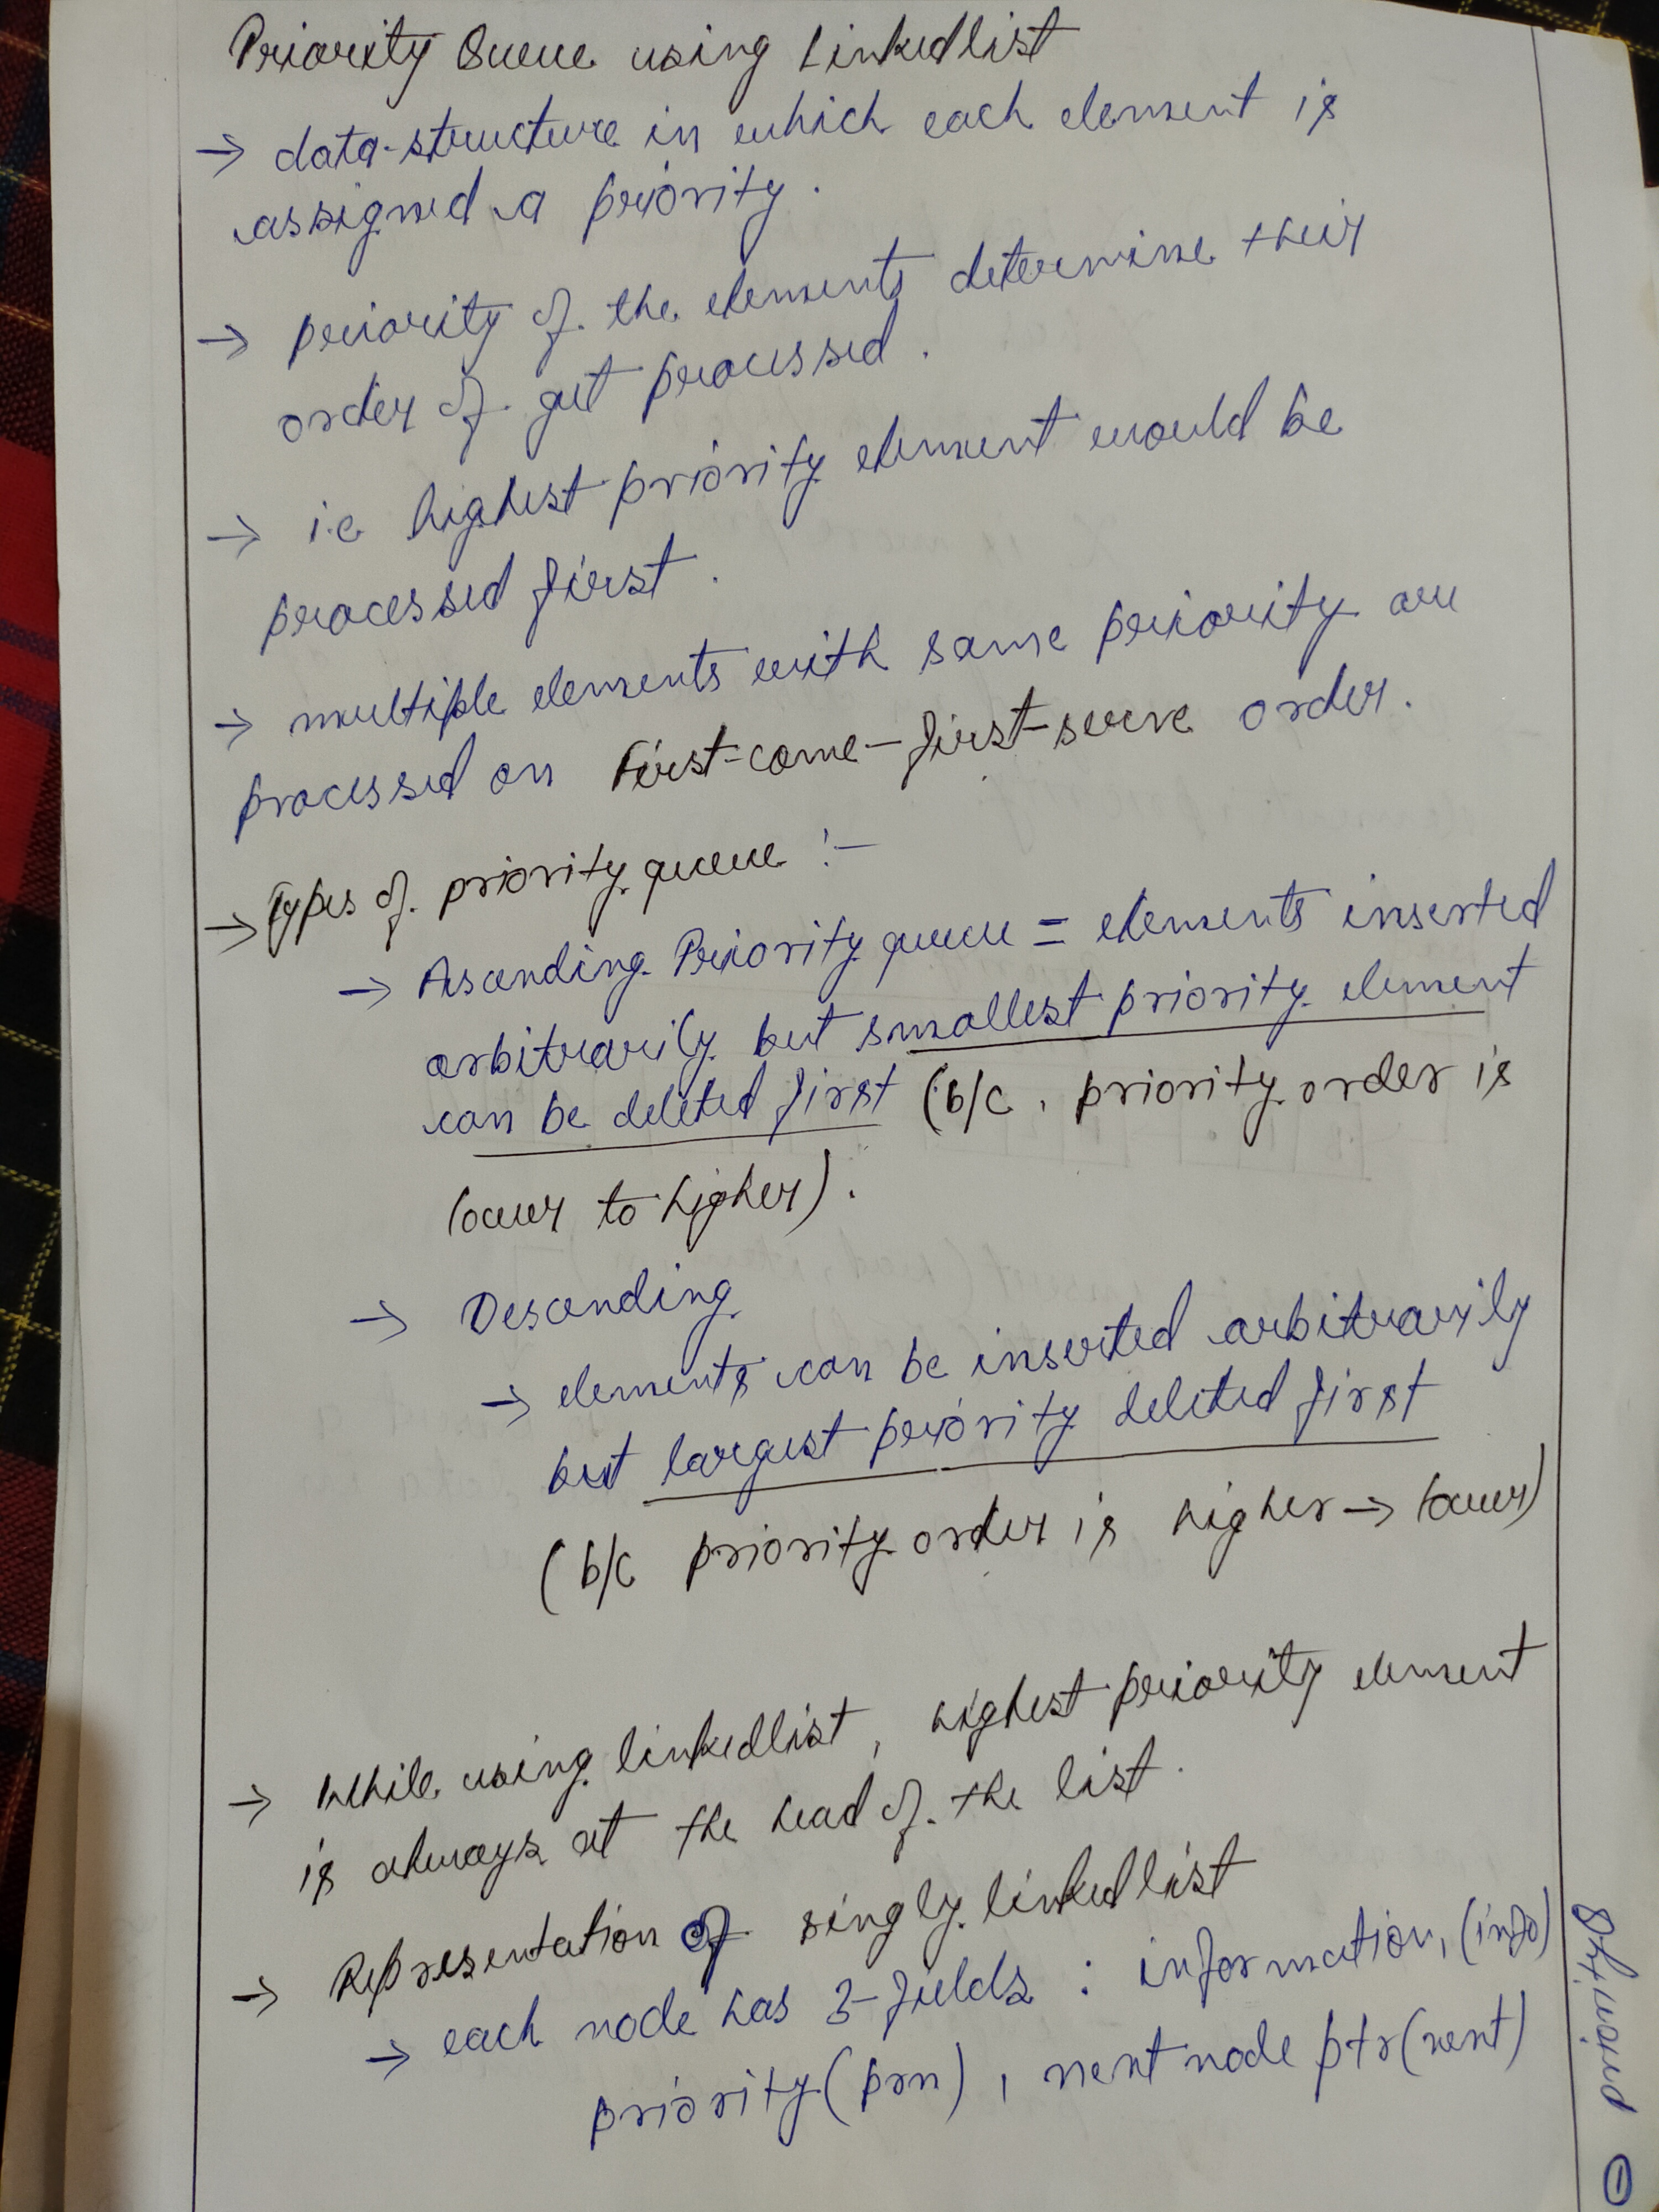 Priority Queue using Linkedlist
→ data-structure in which each element is
assigned a priority.
→ priority of the elements determine their
order of get processed.
→ i.e highest priority element would be
processed first.
→ multiple elements with same priority are
processed on First-come-first-serve order.
→ Types of priority queue :-
→ Ascending Priority queue = elements inserted
arbitrarily but smallest priority element
can be deleted first (b/c, priority order is
lower to higher).
→ Descending
→ elements can be inserted arbitrarily
but largest priority deleted first
(b/c priority order is higher → lower)
→ While using linkedlist, highest priority element
is always at the head of the list.
→ Representation of singly linked list
→ each node has 3-fields : information, (info)
priority (prn), next node ptr (next)